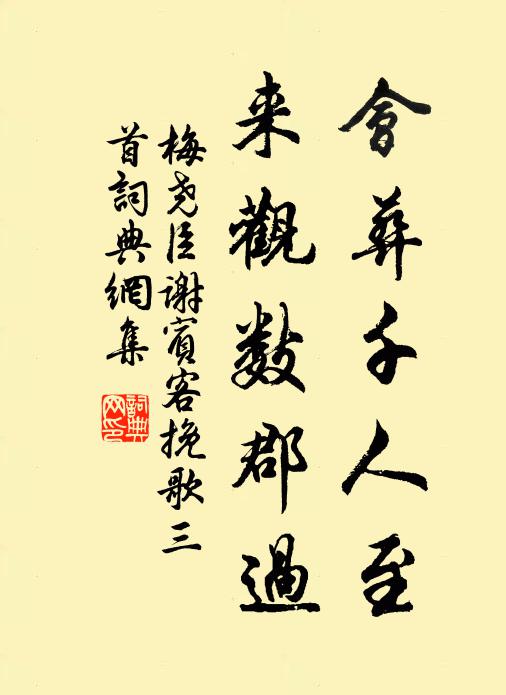 會葬千人至
来觀數郡過
梅尧臣谢賓客挽歌三
首詞典網集
詞典网印